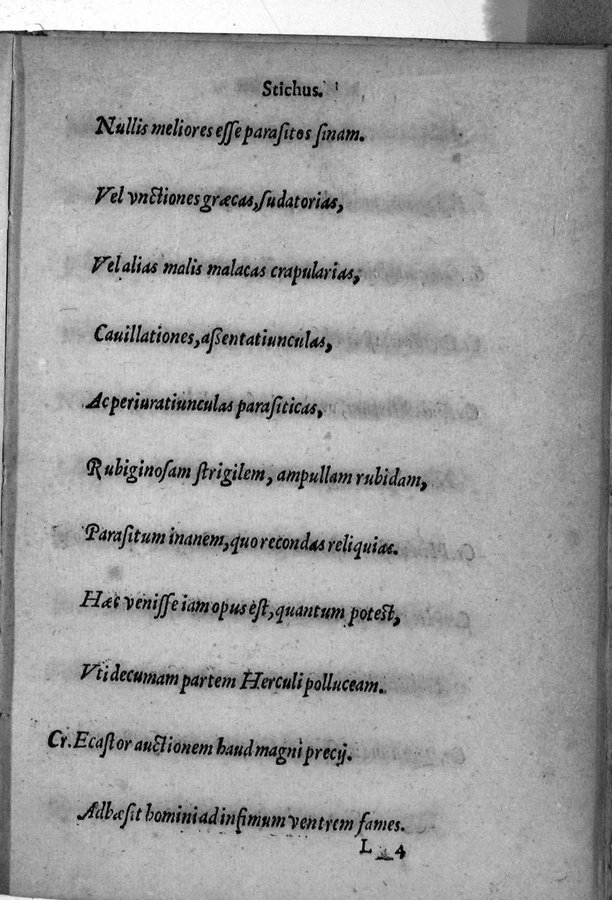 Stichus.
Nullis meliores esse parasitos sinam.
Vel vnctiones græcas, sudatorias,
Vel alias malis malacas crapularias,
Cauillationes, assentatiunculas,
Ac periuratiunculas parasiticas,
Rubiginosam strigilem, ampullam rubidam,
Parasitum inanem, quo recondas reliquias.
Hæc venisse iam opus est, quantum potest,
Vti decumam partem Herculi polluceam.
Cr. Ecastor auctionem haud magni precij.
Adhæsit homini ad infimum ventrem fames.
L 4